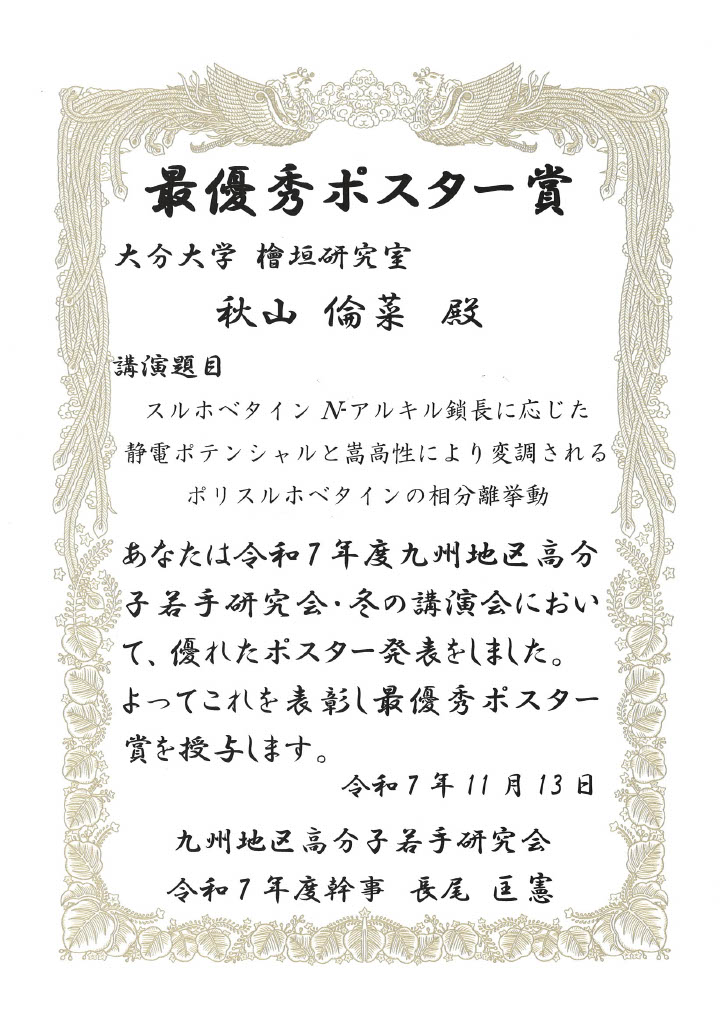 最優秀ポスター賞
大分大学 檜垣研究室
秋山 倫菜 殿
講演題目
スルホベタイン N-アルキル鎖長に応じた
静電ポテンシャルと嵩高性により変調される
ポリスルホベタインの相分離挙動
あなたは令和7年度九州地区高分
子若手研究会・冬の講演会におい
て、優れたポスター発表をしました。
よってこれを表彰し最優秀ポスター
賞を授与します。
令和7年11月13日
九州地区高分子若手研究会
令和7年度幹事 長尾 匡憲